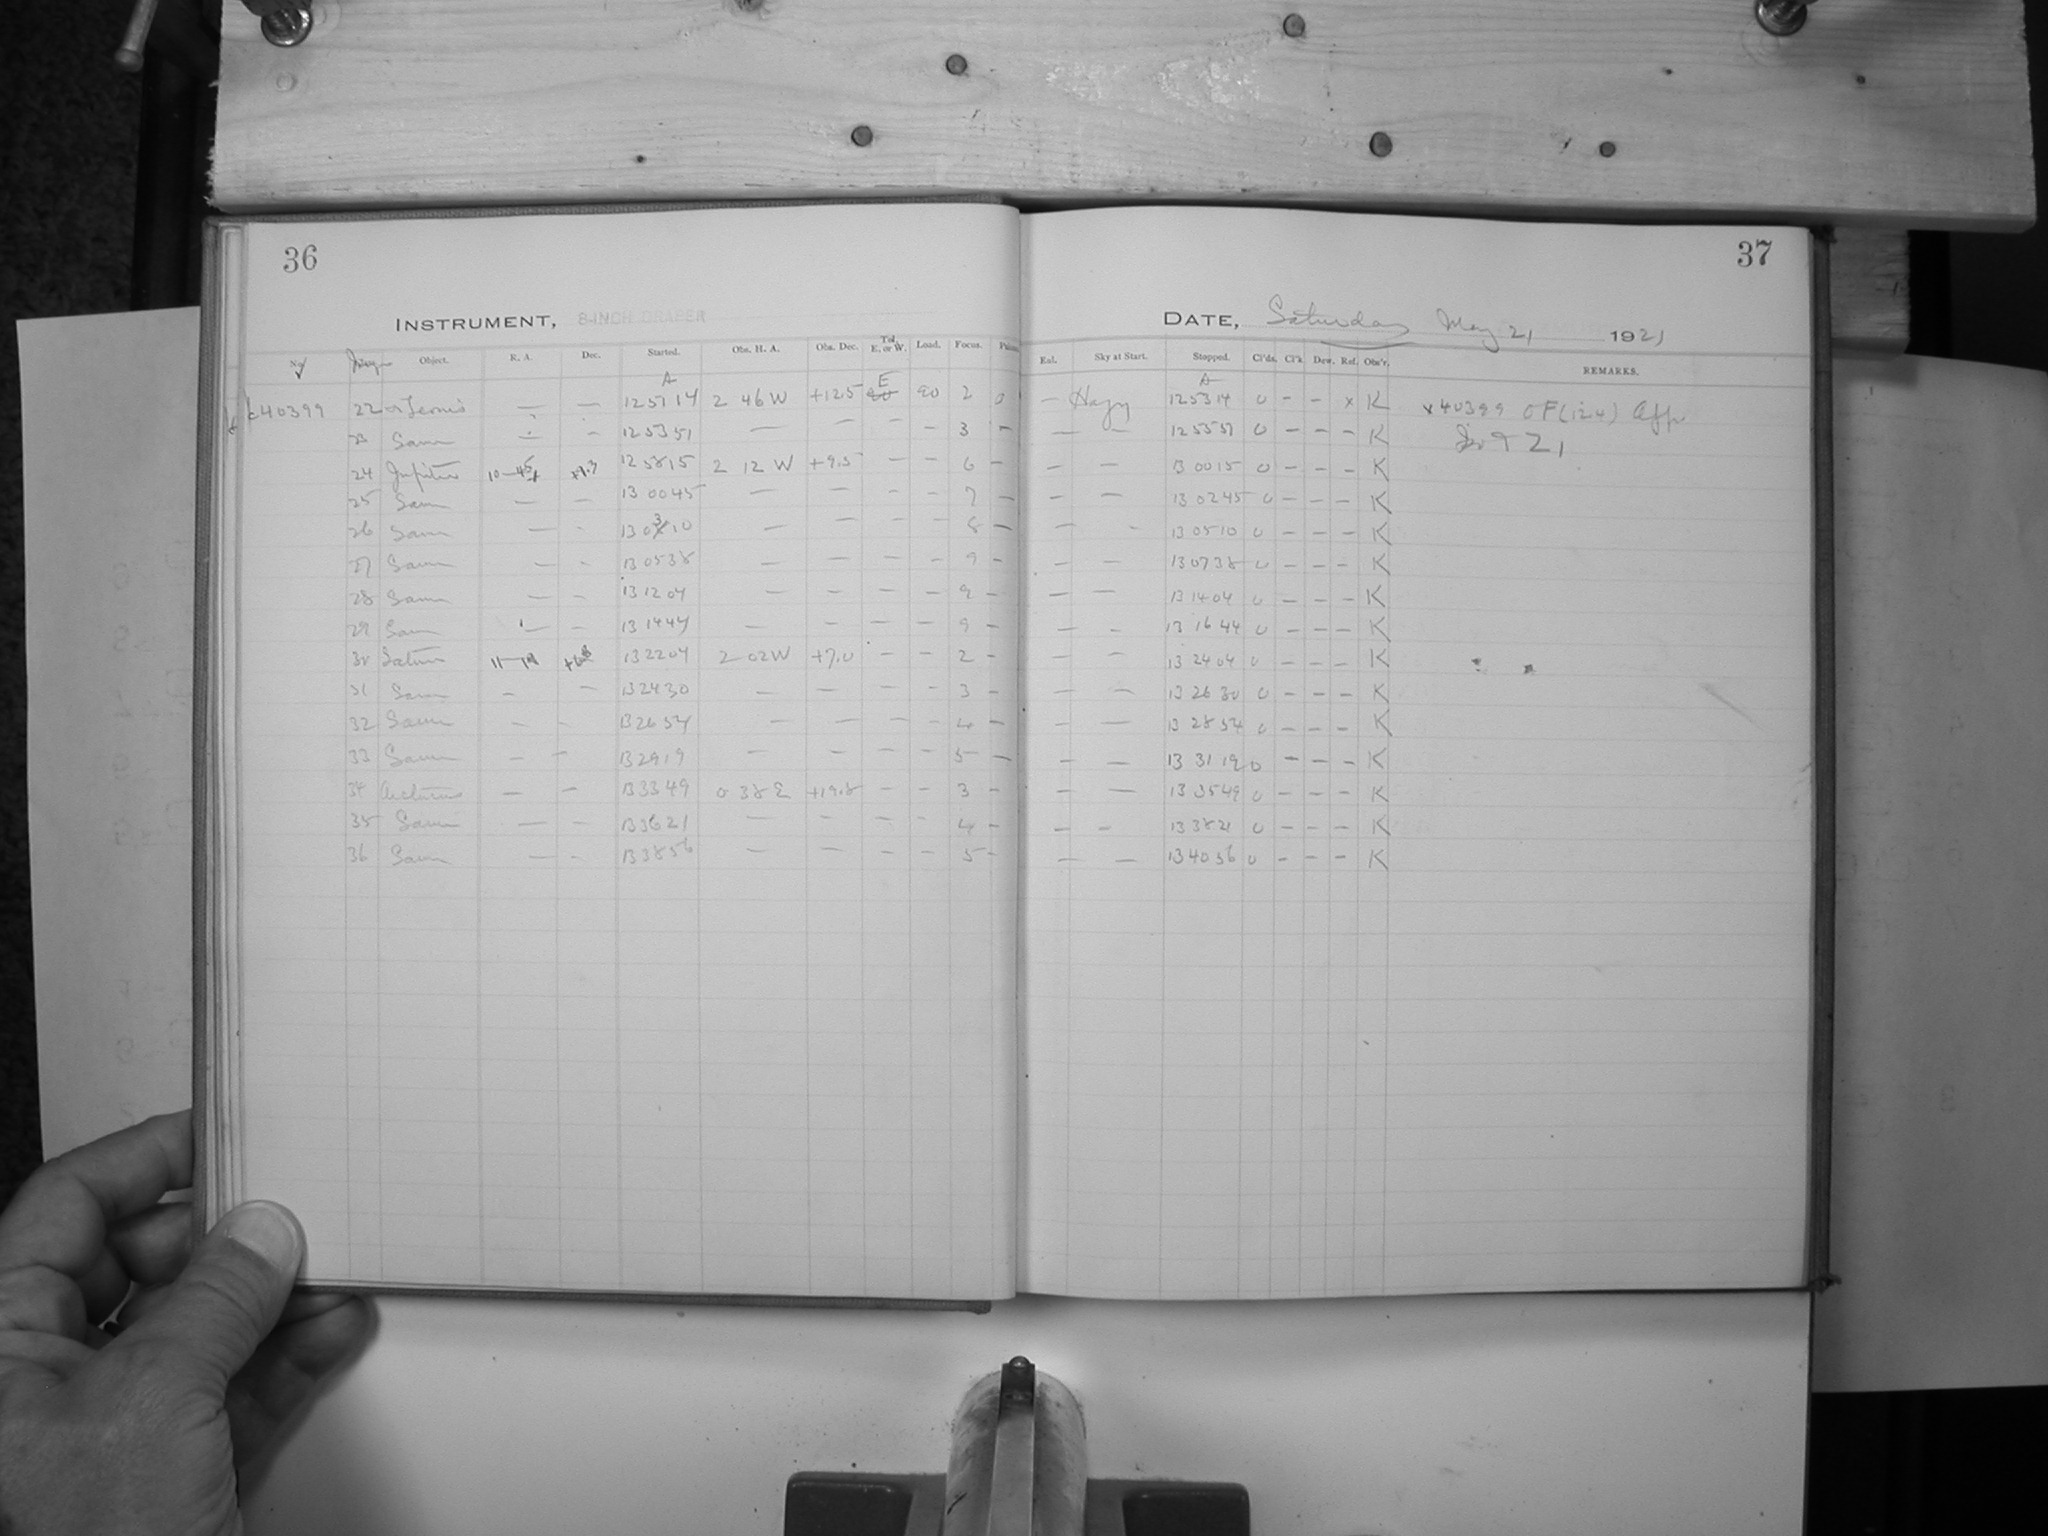 36
37
INSTRUMENT, 8-INCH DRAPER
DATE, Saturday May 21 1921
No. Object. R. A. Dec. Started. Obs. H. A. Obs. Dec. Tel. E. or W. Load. Focus.
Eal. Sky at Start. Stopped. Cl'ds. Cl'k Dew. Ref. Obs'r. REMARKS.
A A
40399 22 α Leonis — — 125114 2 46 W +12.5 E 90 2 0 — Hazy 125314 0 — — x K x 40399
23 Same — — 125351 — — — — 3 — — — 125551 0 — — — K 21
24 Jupiter 125815 2 12 W +9.5 — — 6 — — — 130015 0 — — — K
25 Same — — 130045 — — — — 7 — — — 130245 0 — — — K
26 Same — — 130310 — — — — 8 — — — 130510 0 — — — K
27 Same — — 130538 — — — — 9 — — — 130738 0 — — — K
28 Same — — 131204 — — — — 9 — — — 131404 0 — — — K
29 Same — — 131444 — — — — 9 — — — 131644 0 — — — K
30 Saturn 132204 2 02 W +7.0 — — 2 — — — 132404 0 — — — K
31 Same — — 132430 — — — — 3 — — — 132630 0 — — — K
32 Same — — 132654 — — — — 4 — — — 132854 0 — — — K
33 Same — — 132919 — — — — 5 — — — 133119 0 — — — K
34 Arcturus — — 133349 0 38 E +19.8 — — 3 — — — 133549 0 — — — K
35 Same — — 133621 — — — — 4 — — — 133821 0 — — — K
36 Same — — 133856 — — — — 5 — — — 134056 0 — — — K